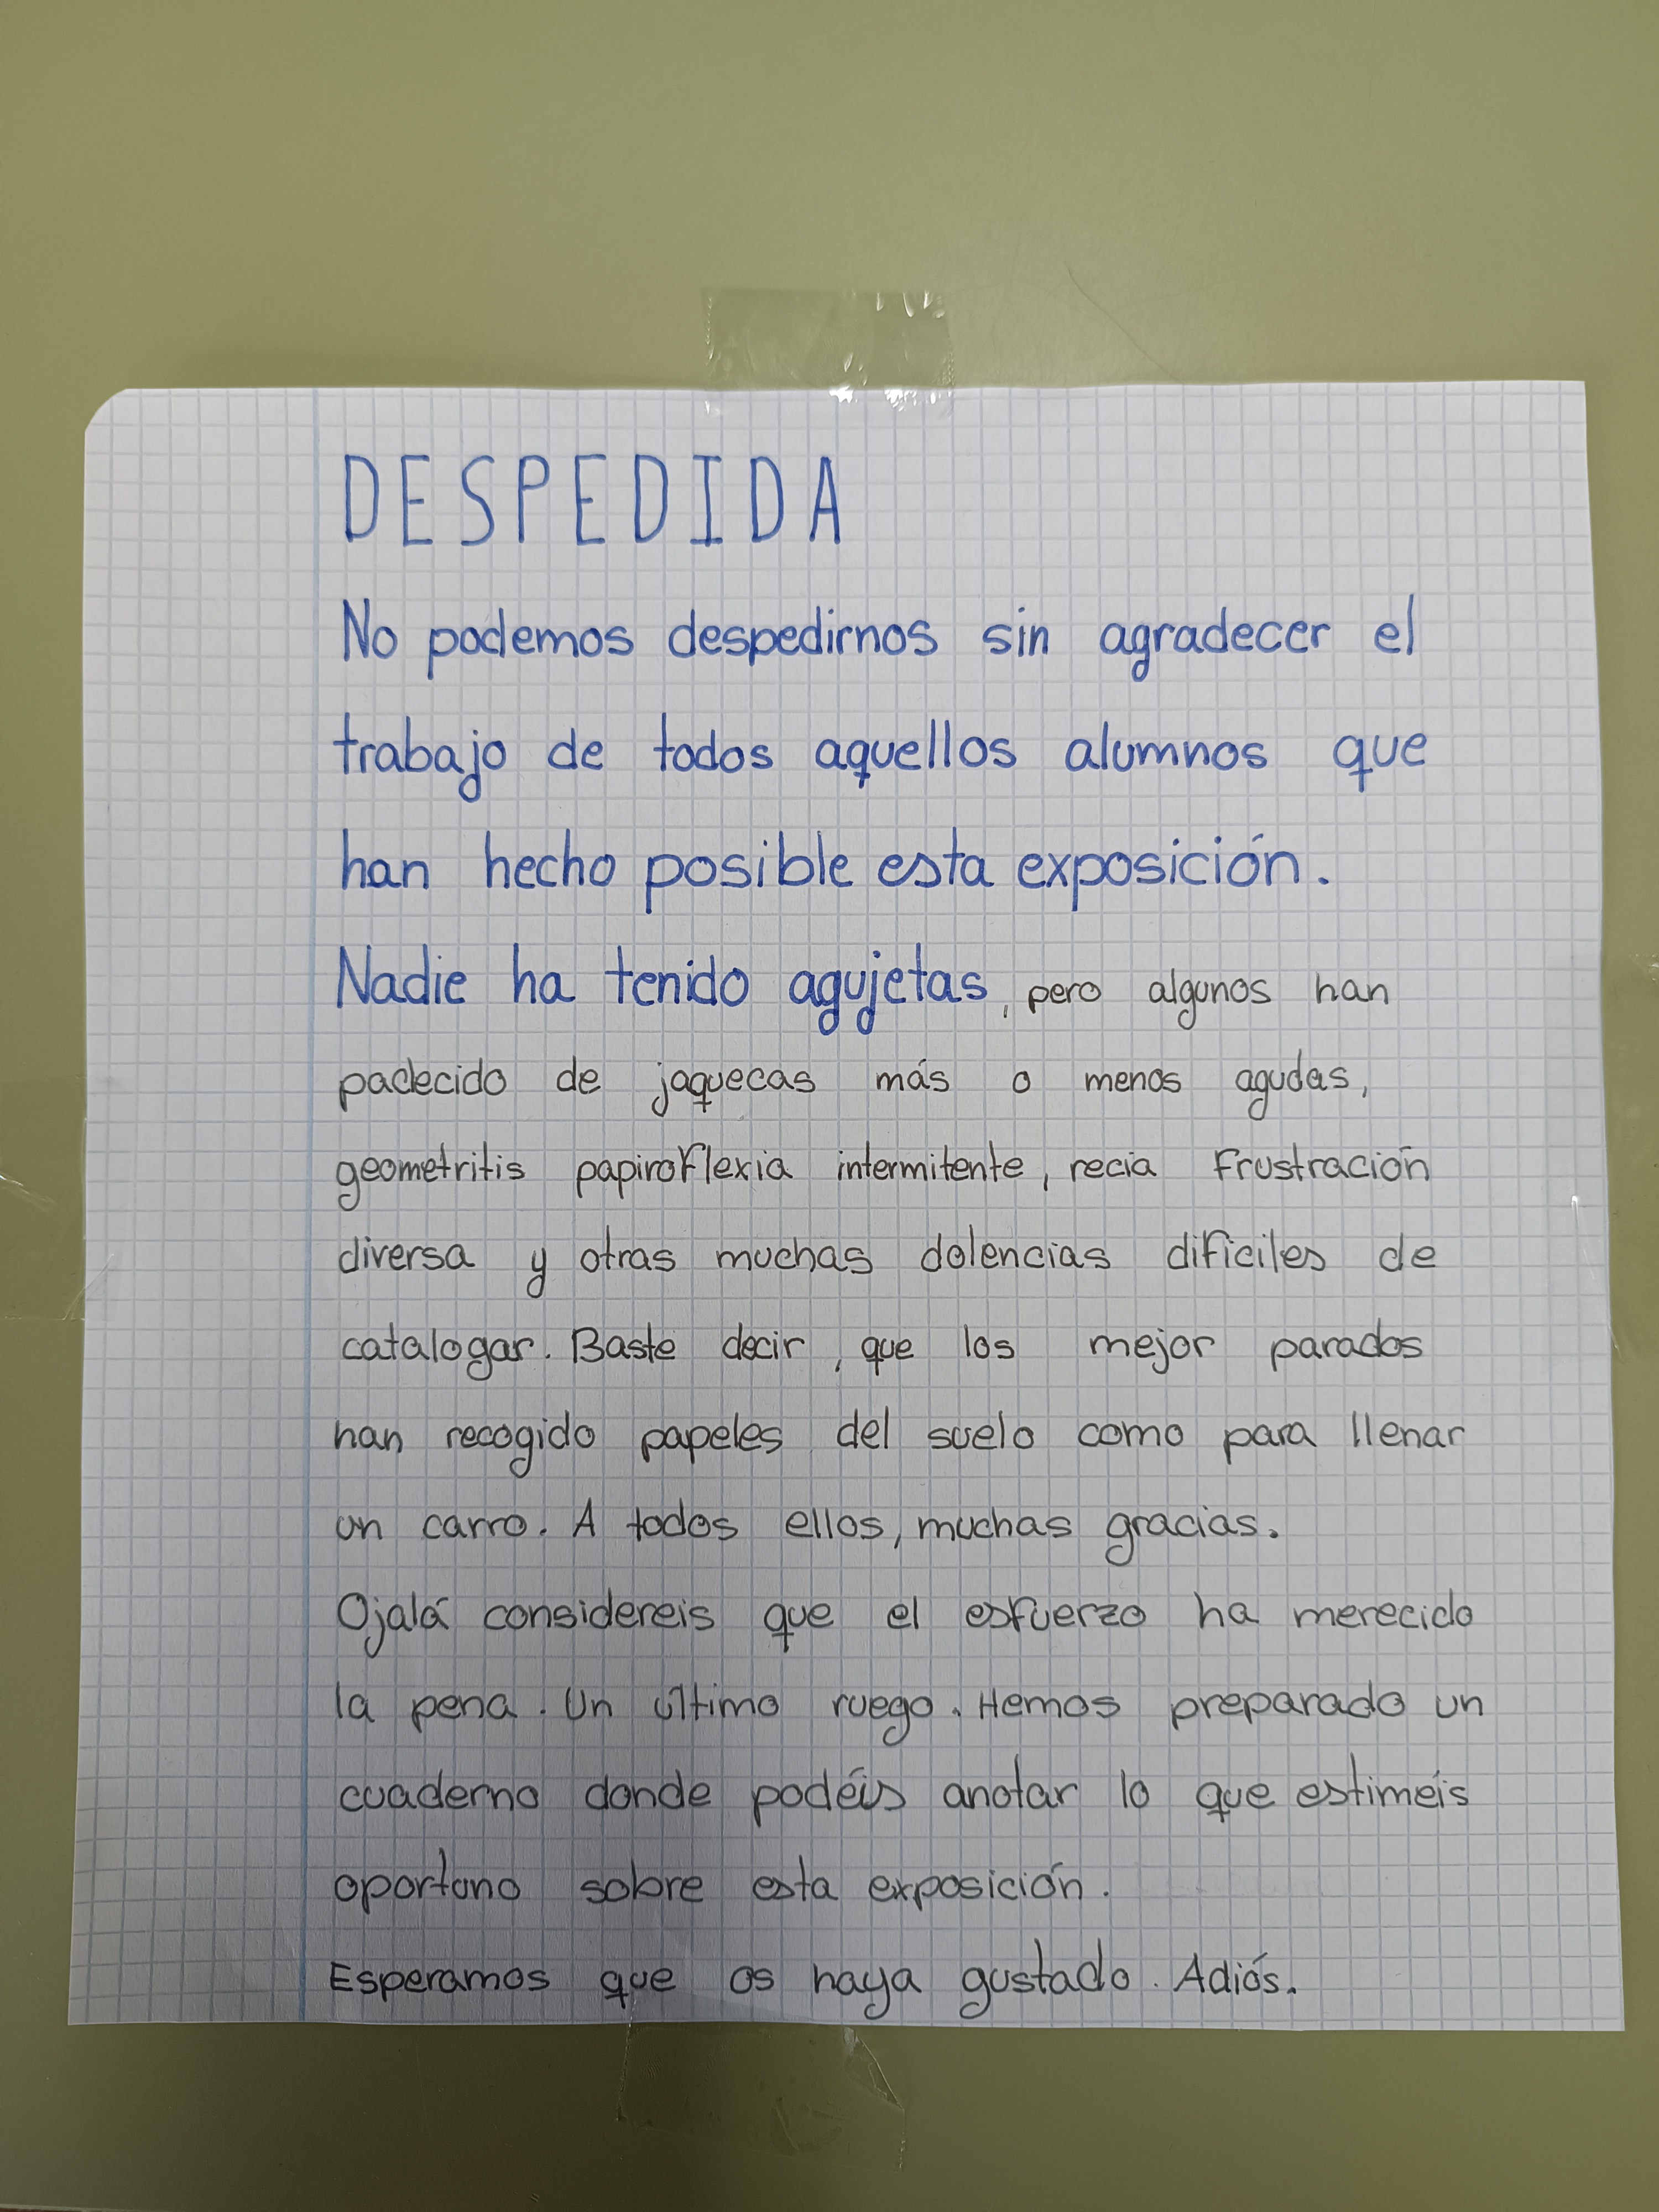 DESPEDIDA
No podemos despedirnos sin agradecer el
trabajo de todos aquellos alumnos que
han hecho posible esta exposición.
Nadie ha tenido agujetas, pero algunos han
padecido de jaquecas más o menos agudas,
geometritis papiroflexia intermitente, recia frustración
diversa y otras muchas dolencias dificiles de
catalogar. Baste decir, que los mejor parados
han recogido papeles del suelo como para llenar
un carro. A todos ellos, muchas gracias.
Ojalá considereis que el esfuerzo ha merecido
la pena. Un último ruego. Hemos preparado un
cuaderno donde podéis anotar lo que estiméis
oportuno sobre esta exposición.
Esperamos que os haya gustado. Adiós.